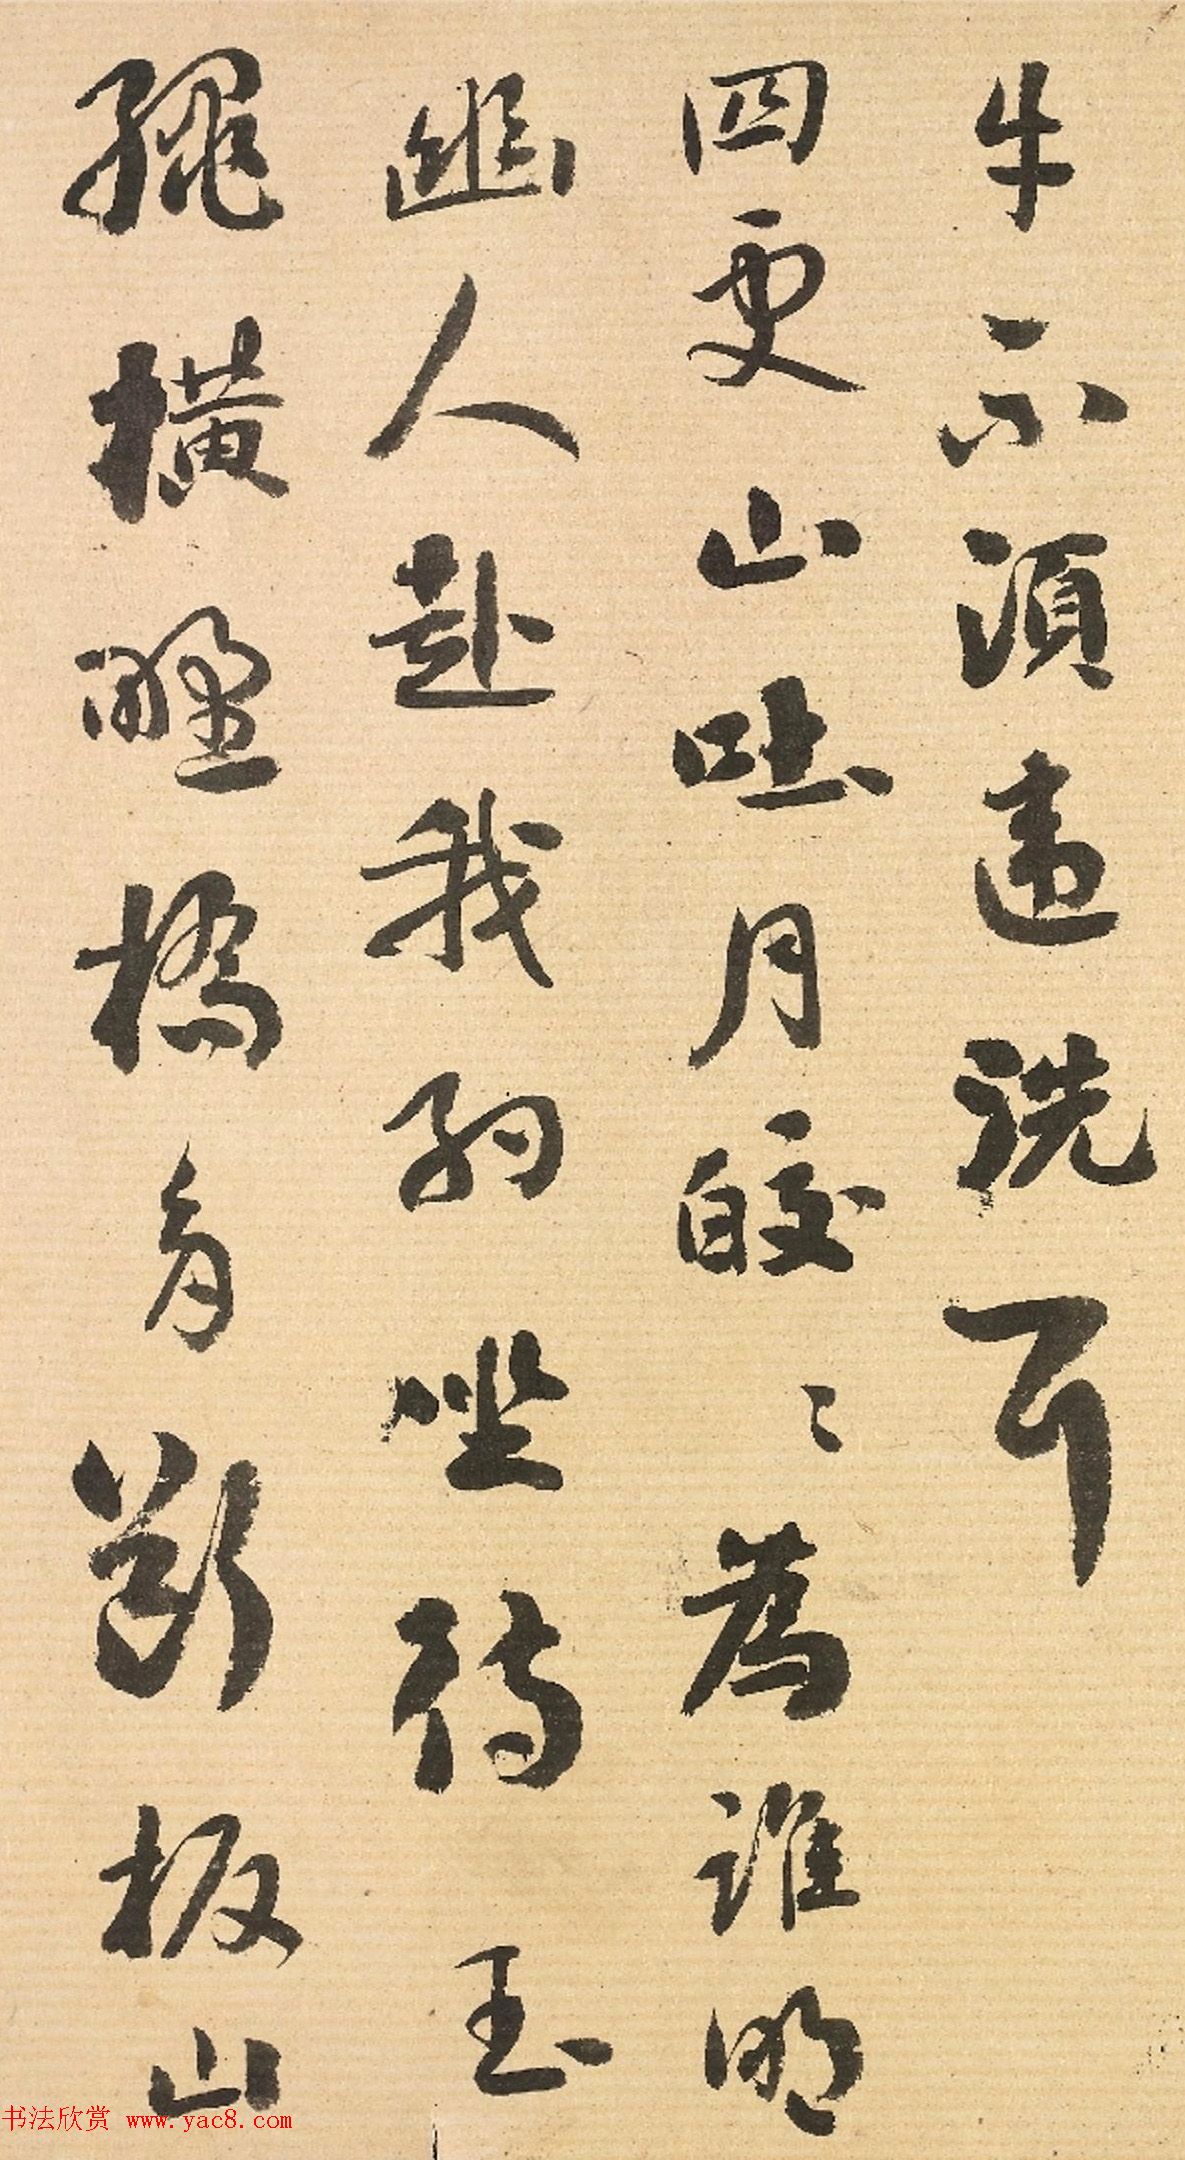 牛不須違洗耳
四更山吐月皎〻為誰明
幽人赴我約坐待玉
繩橫野橋多斷板山
书法欣赏 www.yac8.com